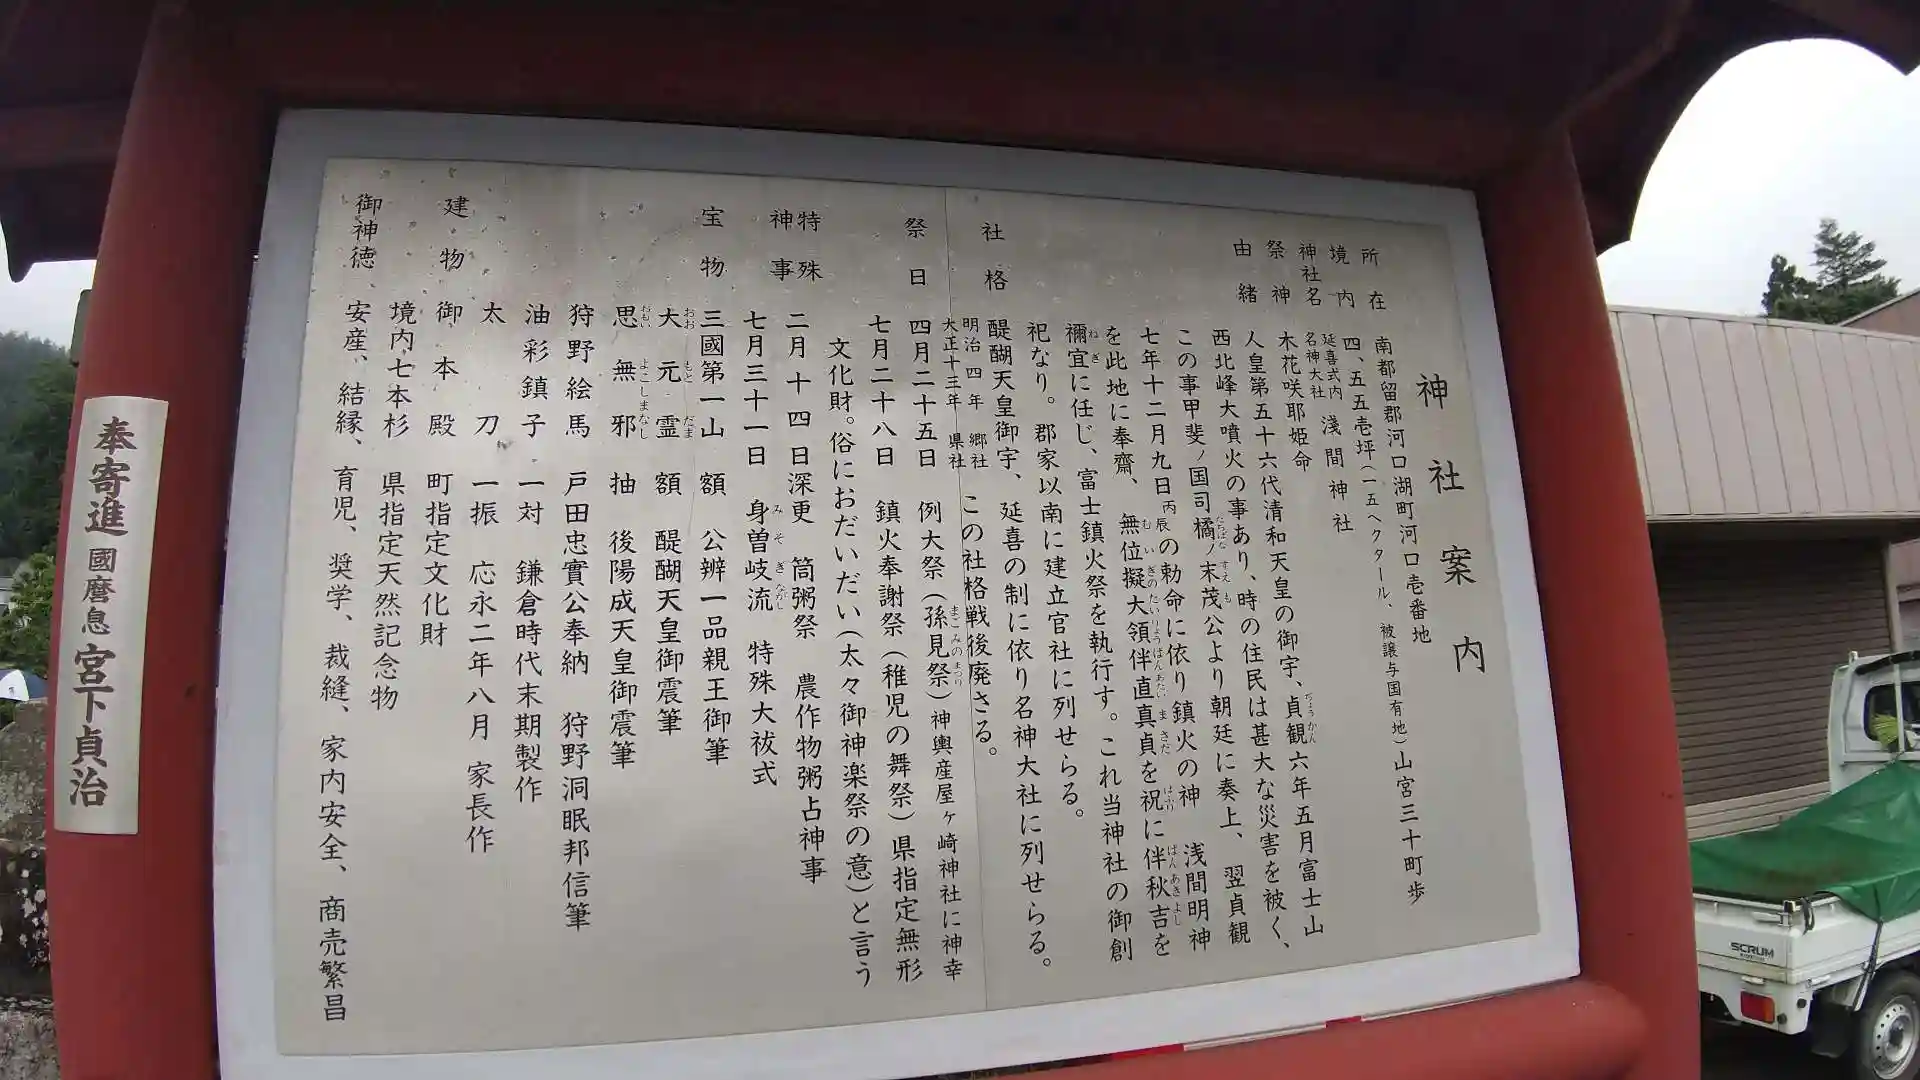 神社案内
所在 南都留郡河口湖町河口壱番地
境内 四、五五壱坪(一五ヘクタール、被譲与国有地)山宮三十町歩
神社名 延喜式内名神大社 淺間神社
祭神 木花咲耶姫命
由緒 人皇第五十六代清和天皇の御宇、貞観六年五月富士山
西北峰大噴火の事あり、時の住民は甚大な災害を被く、
この事甲斐ノ国司橘ノ末茂公より朝廷に奏上、翌貞観
七年十二月九日丙辰の勅命に依り鎮火の神 浅間明神
を此地に奉齋、無位擬大領伴直真貞を祝に伴秋吉を
禰宜に任じ、富士鎮火祭を執行す。これ当神社の御創
祀なり。郡家以南に建立官社に列せらる。
醍醐天皇御宇、延喜の制に依り名神大社に列せらる。
社格 明治四年 郷社 大正十三年 県社 この社格戦後廃さる。
祭日 四月二十五日 例大祭(孫見祭)神輿産屋ヶ崎神社に神幸
七月二十八日 鎮火奉謝祭(稚児の舞祭)県指定無形
文化財。俗におだいだい(太々御神楽祭の意)と言う
特殊神事 二月十四日深更 筒粥祭 農作物粥占神事
七月三十一日 身曽岐流 特殊大祓式
宝物 三國第一山 額 公辨一品親王御筆
大元霊 額 醍醐天皇御震筆
思無邪 抽 後陽成天皇御震筆
狩野絵馬 戸田忠實公奉納 狩野洞眠邦信筆
油彩鎮子 一対 鎌倉時代末期製作
太刀 一振 応永二年八月 家長作
建物 御本殿 町指定文化財
境内七本杉 県指定天然記念物
御神徳 安産、結縁、育児、奨学、裁縫、家内安全、商売繁昌
奉寄進 國麿息 宮下貞治
SCRUM